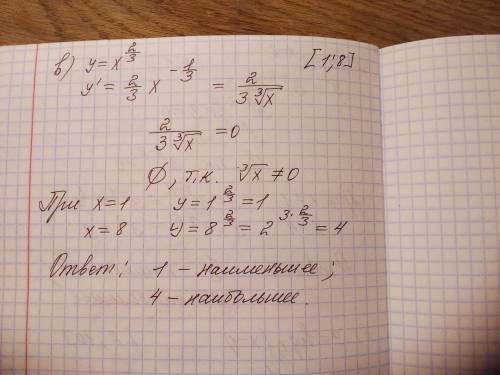 в) y = x^{2/3} [1; 8]
y' = 2/3 x^{-1/3} = 2/(3∛x)
2/(3∛x) = 0
∅, т.к. ∛x ≠ 0
При x = 1 y = 1^{2/3} = 1
x = 8 y = 8^{2/3} = 2^{3·2/3} = 4
Ответ: 1 – наименьшее;
4 – наибольшее.